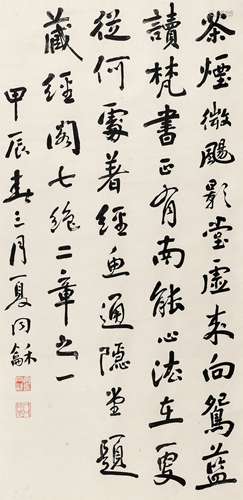 茶煙微颺影堂虛来向鴛藍
讀梵書正有南能心法在更
從何處著經魚通隱堂題
藏經閣七絶二章之一
甲辰春三月夏同龢